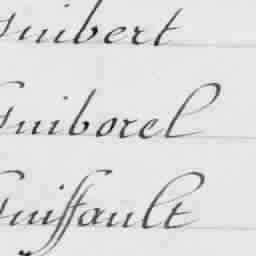 Guibert
Guiborel
Guiffault